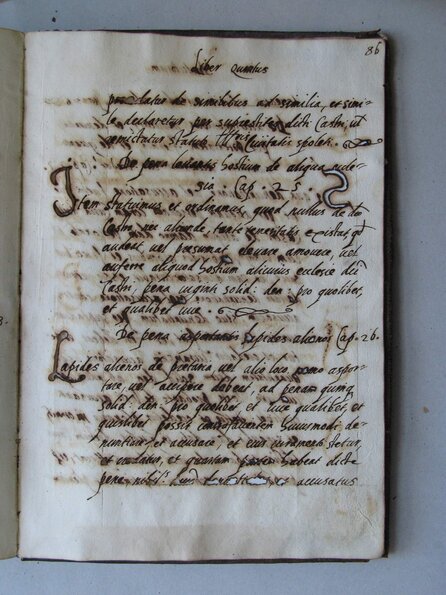 86
Liber Quartus
de similibus ad similia, et simi-
le declaretur per dicti Castri, ut
statuti Civitatis spoleti
De pena hostium de aliqua eccle-
sia Cap. 25.
Item statuimus et ordinamus, quod nullus de do
Castro vel aliunde, tante temeritatis existat, qd
audeat, vel presumat elevare amovere, vel
auferre aliquod hostium alicuius ecclesie dci
Castri, pena viginti solid: den: pro quolibet,
et qualibet vice
De pena asportantis lapides alienos Cap. 26.
Lapides alienos de vel alio loco nemo aspor-
tare, vel accipere debeat, ad penam quinq
solid: den: pro quolibet et vice qualibet, et
quislibet possit contrafacientem huiusmodi de-
nuntiare et accusare, et eius iuramento stetur,
et credatur, et quartam partem habeat dicte
pene, accusatus